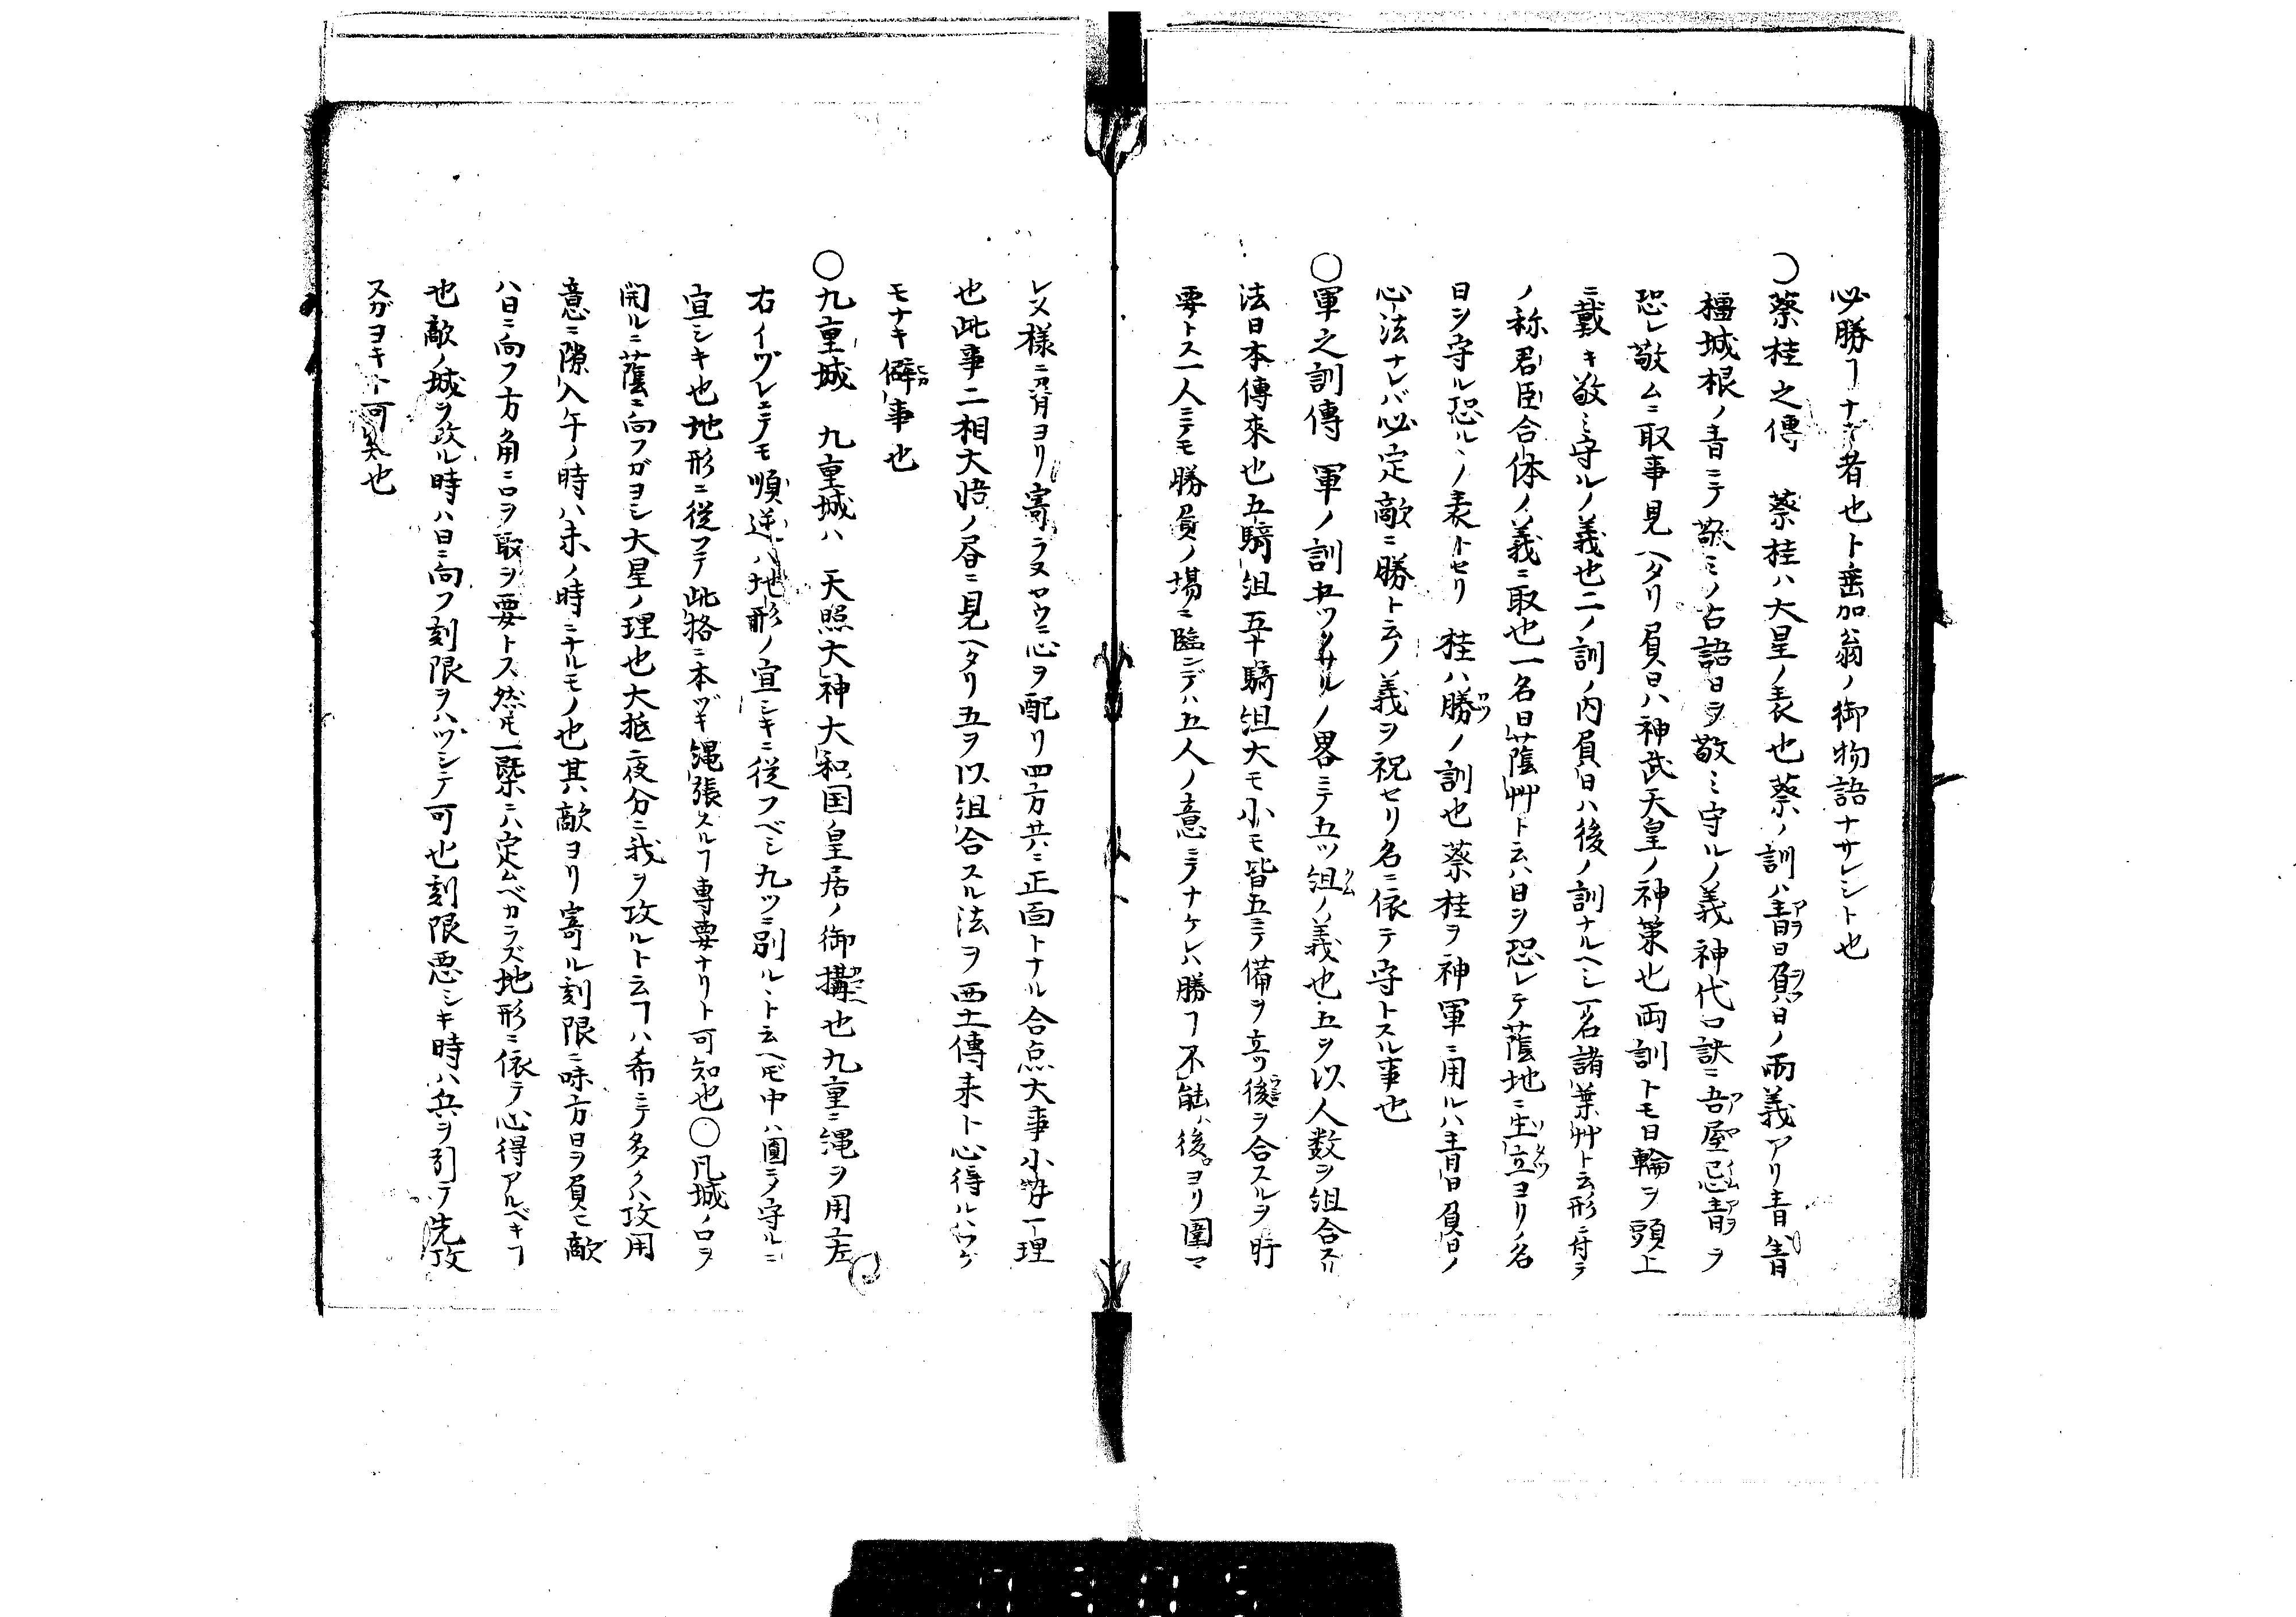 必勝フナキ者也ト垂加翁ノ御物語ナサレシト也
〇葵桂之傳　葵桂ハ大星ノ表也葵ノ訓ハ青日負日ノ両義アリ青
橿城根ノ青ニテ敬ミノ古語日ヲ敬ミ守ルノ義神代口訣ニ吾屋忌青ヲ
恐レ敬ムニ取事見ヘタリ負日ハ神武天皇ノ神策也両訓トモ日輪ヲ頭上
ニ戴キ敬ミ守ルノ義也二ノ訓ノ内負日ハ後ノ訓ナルヘシ一名諸葉艸ト云形ニ付テ
ノ称君臣合体ノ義ニ取也一名日蔭艸ト云ハ日ヲ恐レテ蔭地ニ生立ヨリノ名
日ヲ守ル恐ルヽノ表トセリ　桂ハ勝ノ訓也葵桂ヲ神軍ニ用ルハ青日負日ノ
心法ナレバ必定敵ニ勝ト云ノ義ヲ祝セリ名ニ依テ守トスル事也
〇軍之訓傳　軍ノ訓ノ畧ニテ五ツ組ノ義也五ヲ以人数ヲ組合スル
法日本傳来也五騎組五十騎組大モ小モ皆五ニテ備ヲ立後ヲ合スルヲ肝
要トス一人ニテモ勝負ノ場ニ臨ンデハ五人ノ意ニテナケレハ勝フ不能後ヨリ圍マ
レヌ様ニ寄ラヌヤウニ心ヲ配リ四方共ニ正面トナル合点大事小事一理
也此事二相大悟ノ巻ニ見ヘタリ五ヲ以組合スル法ヲ西土傳来ト心得ルハ
モナキ僻事也
〇九重城　九重城ハ　天照大神大和国皇居ノ御搆也九重ニ縄ヲ用左
右イヅレニテモ順逆ハ地形ノ宣シキニ従フベシ九ツニ別ルヽト云ヘ𪜈中ハ圓ニテ守ルニ
宣シキ也地形ニ従フテ此格ニ本ヅキ縄張スルフ専要ナリト可知也〇凡城ノ口ヲ
開ルニ蔭ニ向フガヨシ大星ノ理也大抵夜分ニ我ヲ攻ルト云フハ希ニテ多クハ攻用
意ニ隙入午ノ時ハ未ノ時ニナルモノ也其敵ヨリ寄ル刻限ニ味方日ヲ負ヒ敵
ハ日ニ向フ方角ニ口ヲ取ヲ要トス然𪜈一槩ニハ定ムベカラズ地形ニ依テ心得アルベキフ
也敵ノ城ヲ攻ル時ハ日ニ向フ刻限ヲハヅシテ可也刻限悪シキ時ハ兵ヲ引テ先攻
スガヨキト可知也